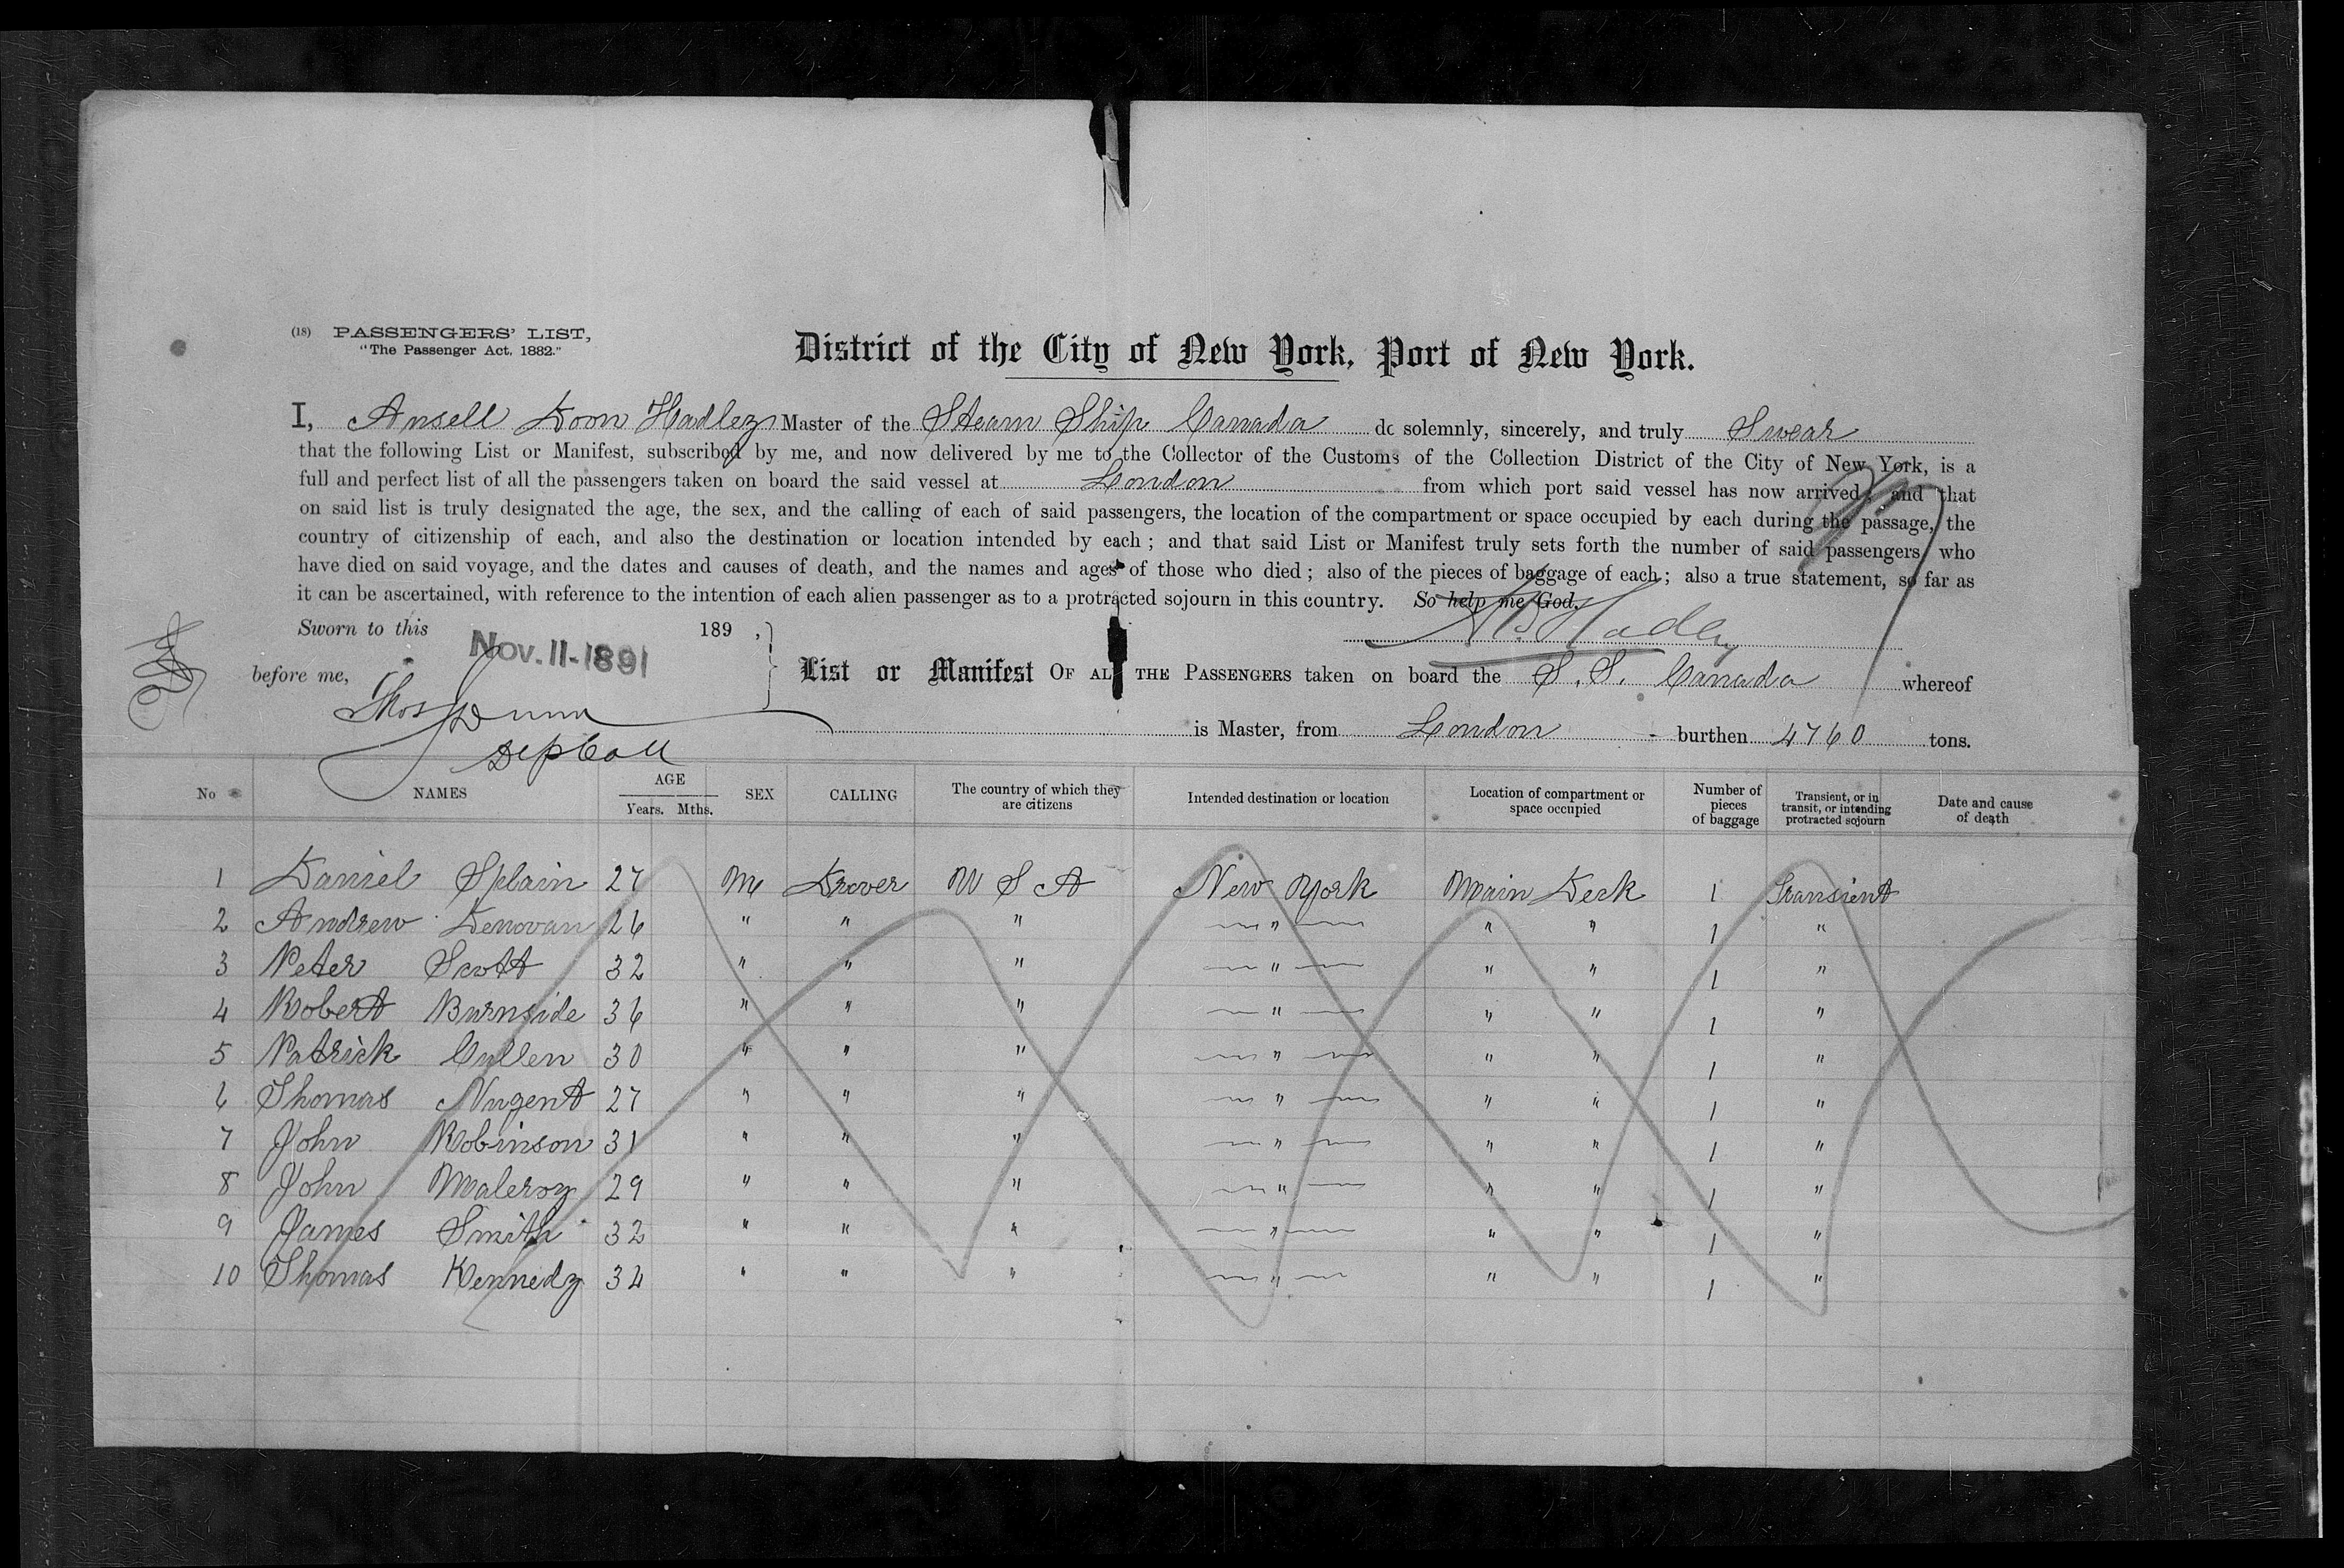 (18) PASSENGERS' LIST,
"The Passenger Act, 1882."
District of the City of New York, Port of New York.
I, Ansell Doon Hadley Master of the Steam Ship Canada do solemnly, sincerely, and truly Swear
that the following List or Manifest, subscribed by me, and now delivered by me to the Collector of the Customs of the Collection District of the City of New York, is a
full and perfect list of all the passengers taken on board the said vessel at London from which port said vessel has now arrived; and that
on said list is truly designated the age, the sex, and the calling of each of said passengers, the location of the compartment or space occupied by each during the passage, the
country of citizenship of each, and also the destination or location intended by each; and that said List or Manifest truly sets forth the number of said passengers who
have died on said voyage, and the dates and causes of death, and the names and ages of those who died; also of the pieces of baggage of each; also a true statement, so far as
it can be ascertained, with reference to the intention of each alien passenger as to a protracted sojourn in this country. So help me God.
Sworn to this 189 ,
Nov. 11-1891
A D Hadley
before me,
Thos Dunn
Dep Coll
List or Manifest OF ALL THE PASSENGERS taken on board the S. S. Canada whereof
is Master, from London burthen 4760 tons.
No NAMES AGE Years. Mths. SEX CALLING The country of which they are citizens Intended destination or location Location of compartment or space occupied Number of pieces of baggage Transient, or in transit, or intending protracted sojourn Date and cause of death
1 Daniel Splain 27 M Drover U S A New York Main Deck 1 Transient
2 Andrew Denovan 26 " " " " " " 1 "
3 Peter Scott 32 " " " " " " 1 "
4 Robert Burnside 36 " " " " " " 1 "
5 Patrick Cullen 30 " " " " " " 1 "
6 Thomas Nugent 27 " " " " " " 1 "
7 John Robinson 31 " " " " " " 1 "
8 John Maleroy 29 " " " " " " 1 "
9 James Smith 32 " " " " " " 1 "
10 Thomas Kennedy 34 " " " " " " 1 "